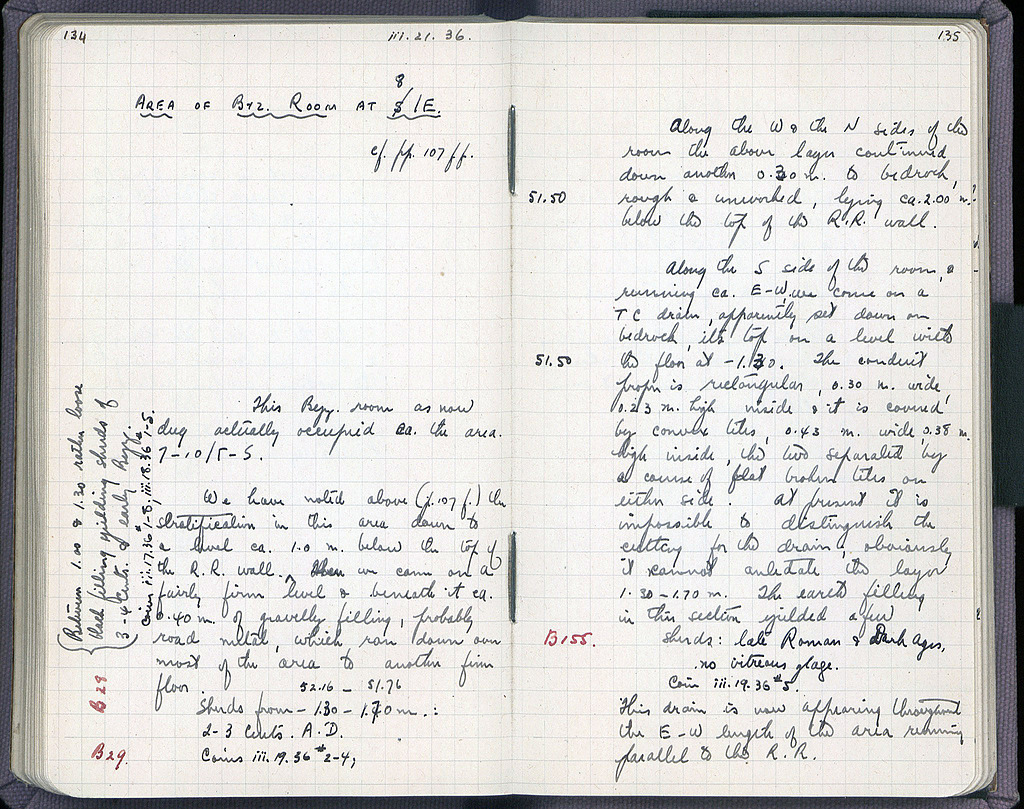 134
iii. 21. 36.
8
AREA OF BYZ. ROOM AT S/IE.
cf. pp. 107 ff.
This Byz. room as now
dug actually occupied ca. the area.
7-10/Γ-5.
We have noted above (p. 107 f.) the
stratification in this area down to
a level ca. 1.0 m. below the top of
the R.R. wall. Then we came on a
fairly firm level & beneath it ca.
0.40 m. of gravelly filling, probably
road metal, which ran down over
most of the area to another firm
floor.
52.16 – 51.76
Sherds from – 1.30 – 1.70 m.:
2-3 Cents. A.D.
Coins iii. 19. 36 # 2-4;
{Between 1.00 & 1.30 rather loose
black filling yielding sherds of
3-4 Cents. & early Byz.
Coins iii.17.36 # 1-8; iii.18.36 # 1-5.
B 28
B 29.
135
Along the W & the N sides of the
room the above layer continued
down another 0.30 m. to bedrock,
51.50
rough & unworked, lying ca. 2.00 m.
below the top of the R.R. wall.
Along the S side of the room, &
running ca. E-W, we come on a
TC drain, apparently set down on
bedrock, its top on a level with
51.50
the floor at -1.30. The conduit
proper is rectangular, 0.30 m. wide,
0.23 m. high inside & it is covered
by convex tiles, 0.43 m. wide, 0.38 m.
high inside, the two separated by
a course of flat broken tiles on
either side. At present it is
impossible to distinguish the
cutting for the drain; obviously
it cannot antedate the layer
1.30-1.70 m. The earth filling
in this section yielded a few
B 155.
sherds: late Roman & Dark Ages,
no vitreous glaze.
Coin iii. 19. 36 # 5.
This drain is now appearing throughout
the E-W length of the area running
parallel to the R.R.